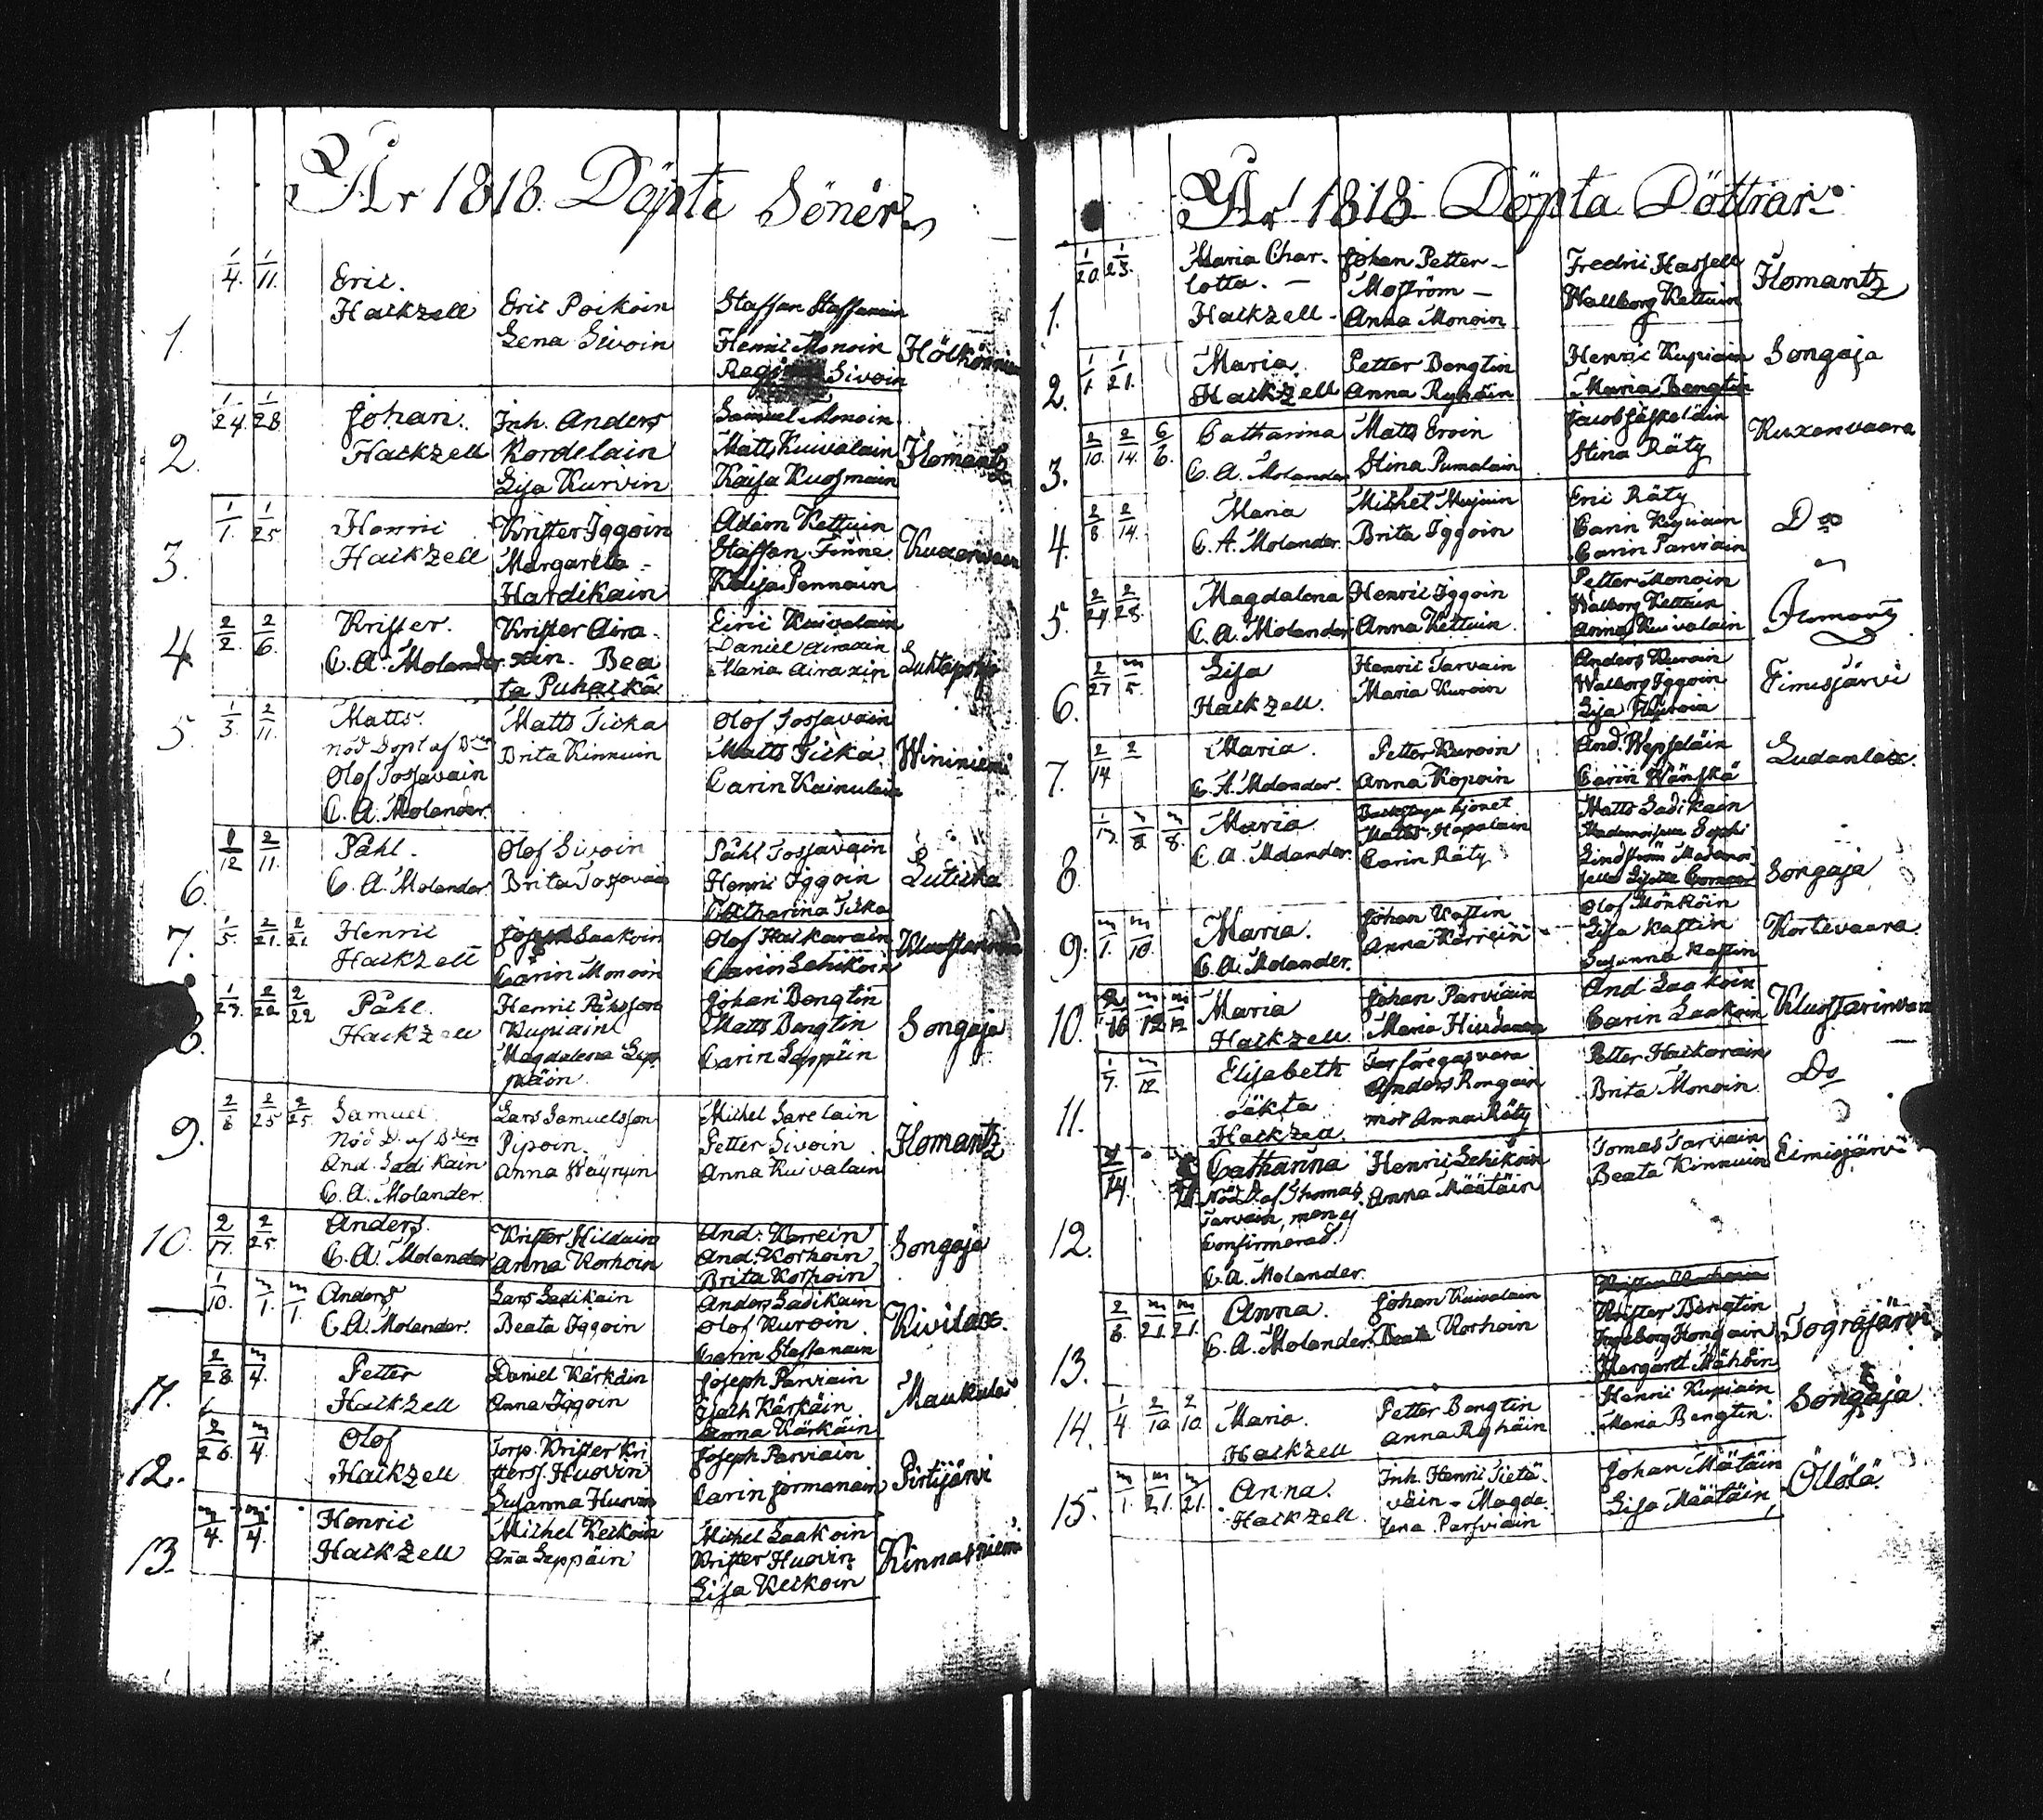 År 1818. Döpte Söner
1.
1/4. 1/11.
Eric.
Haikzell
Eric Poikoin
Lena Sivoin
Staffan Staffanain
Henric Monoin
Sivoin
2.
1/24. 1/28
Johan.
Haikzell
Inh. Anders
Kordelain
Lisa Kurvin
Samuel Monoin
Matts Kuivalain
Kaisa Kuosmain
Ilomantz
3.
1/1. 1/25
Henric
Haikzell
Krister Iggoin
Margareta
Hardikain
Adam Kettuin
Staffan Finne
Kaisa Pennain
4
2/2. 2/6.
Krister.
C. A. Molander
Krister Aira-
xin. Bea
ta Puhakka
Eric Kuivalain
Daniel Airaxin
Maria Airaxin
5.
1/3. 2/11.
Matts.
Nöd Döpt af B
Olof Tossavain
C. A. Molander.
Matts Ticka
Brita Kinnuin
Olof Tossavain
Matts Ticka
Carin Kainulain
Wininiemi
6.
1/12 2/11.
Påhl.
C. A. Molander.
Olof Sivoin
Brita Tossavain
Påhl Tossavain
Henric Iggoin
Catharina Ticka
Luticka
7.
1/5. 2/21. 2/21
Henric
Haikzell
Joseph Saakoin
Carin Monoin
Olof Haikarain
Carin Lehikoin
8.
1/27. 2/22 2/22
Påhl.
Haikzell
Henric Påhlsson
Kupiain
Magdalena Sep
päin.
Johan Bengtin
Matts Bengtin
Carin Seppäin
Songaja
9.
2/8 2/25 2/25.
Samuel
Nöd D. af B
And. Sadikain
C. A. Molander.
Lars Samuelsson
Piipoin.
Anna Wäyrynin
Michel Sarelain
Petter Sivoin
Anna Kuivalain
Ilomantz
10.
2/17. 2/25.
Anders.
C. A. Molander
Krister Hildain
Anna Korhoin
And. Karrein
And. Korhoin
Brita Korhoin
Songaja
1/10. m/1. m/1
Anders
C. A. Molander.
Lars Sadikain
Beata Iggoin
Anders Sadikain
Olof Kuroin
Carin Staffanain
Kivilax.
11.
2/28. m/4.
Petter
Haikzell
Daniel Kärkäin
Anna Iggoin
Joseph Parviain
Kärkäin
Anna Kärkäin
12.
2/26. m/4
Olof
Haikzell
Torp. Krister Kri
sterss. Huovin
Susanna Huovin
Joseph Parviain
Carin Jormanain
Pirtijärvi
13.
m/4. m/4.
Henric
Haikzell
Michel Keikoin
Ana Seppäin
Michel Saakoin
Krister Huovin
Lisa Keikoin
Kinnasniemi
År 1818 Döpta Döttrar
1.
1/20. 1/25.
Maria Char-
lotta. —
Haikzell
Johan Petter —
Moström —
Anna Monoin
Fredric Hassell
Wallborg Kettuin
Ilomantz
2.
1/1 1/21.
Maria
Haikzell
Petter Bengtin
Anna Ryhäin
Henric Kupiain
Maria Bengtin
Songaja
3.
2/10. 2/14. 6/6.
Catharina
C. A. Molander
Matts Eroin
Stina Pumalain
Jacob Jäskeläin
Stina Räty
Kuxenvaara
4.
2/8 2/14.
Maria
C. A. Molander.
Michel Mujuin
Brita Iggoin
Eric Räty
Carin Kupiain
Carin Parviain
Do
5.
2/24. 2/28.
Magdalena
C. A. Molander
Henric Iggoin
Anna Kettuin
Petter Monoin
Walborg Kettuin
Anna Kuivalain
Ilomantz
6.
2/27 m/5.
Lisa
Haikzell.
Henric Tarvain
Maria Kuroin
Anders Kuroin
Walborg Iggoin
Lisa Kuroin
Eimisjärvi
7.
2/14 2
Maria.
C. A. Molander.
Petter Kuroin
Anna Kopoin
And. Wepseläin
Carin Wänskä
Ludanlax.
8.
1/17. m/8 m/8.
Maria.
C. A. Molander.
Matts Hapalain
Carin Räty
Matts Sadikain
Mademoiselle Sophi
Lindström Mademoi-
selle
Songaja
9.
m/1. m/10.
Maria.
C. A. Molander.
Johan Kastin
Anna Karrein
Olof Mönköin
Lisa Kastin
Susanna Kastin
Kortevaara
10.
2/16 m/12 m/12
Maria
Haikzell
Johan Parviain
Maria Hiirdanain
And Saakoin
Carin Saakoin
Kluostarinvara
11.
1/7. m/12
Elisabeth
oäkta
Haikzell.
Far föregas vara
Anders Rongain
mor Anna Räty
Petter Haikarain
Brita Monoin
Do
12.
Catharina
Nöd D. af Thomas
Tarvain, men ej
Confirmerad.
C. A. Molander.
Henric Lehikoin
Anna Määtäin
Tomas Tarvain
Beata Kinnuin
Eimisjärvi
13.
2/8. m/21. m/21.
Anna.
C. A. Molander.
Johan Kuivalain
Beata Korhoin
Krister Bengtin
Ingeborg Hongain
Margaret Mähöin
Tograjärvi
14.
1/4. 2/10. 2/10.
Maria.
Haikzell
Petter Bengtin
Anna Ryhäin
Henric Kupiain
Maria Bengtin.
Songaja
15.
m/1. m/21. m/21.
Anna.
Haikzell.
Inh. Henric Tietä-
väin - Magda-
lena Parfviain
Johan Mätäin
Lisa Määtäin
Öllölä